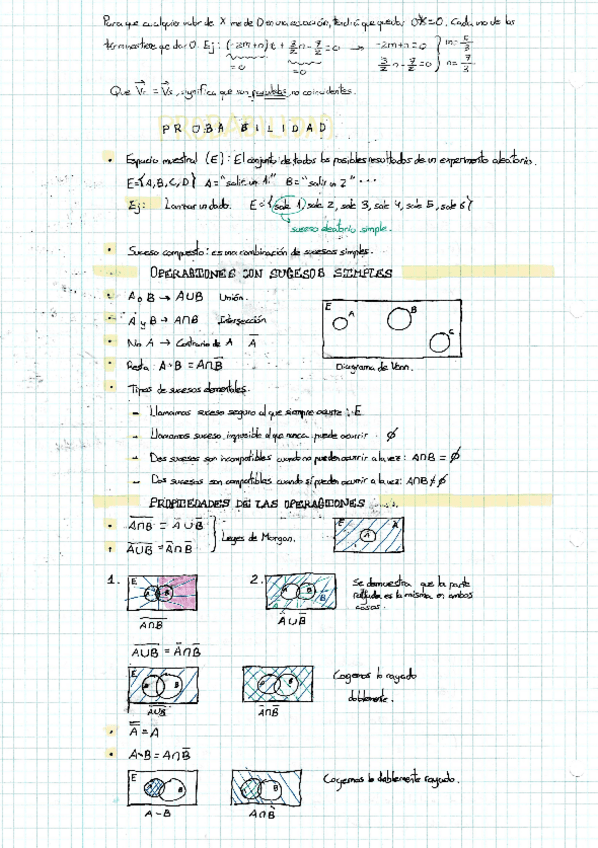 Para que cualquier valor de X me de 0 en una ecuación, tendrá que quedar 0·X=0. Cada uno de los
términos tiene que dar 0. Ej: (-2m+n)t + 3/2 n - 7/2 = 0 → -2m+n=0 } m=
=0 =0 3/2 n - 7/2 = 0 } n= 7/3
Que Vr = Vs, significa que son paralelos, no coincidentes.
PROBABILIDAD
· Espacio muestral (E): El conjunto de todos los posibles resultados de un experimento aleatorio.
E={A,B,C,D} A="salir un 1" B="salir un 2" ...
Ej: Lanzar un dado. E={sale 1, sale 2, sale 3, sale 4, sale 5, sale 6}
suceso aleatorio simple.
· Suceso compuesto: es una combinación de sucesos simples.
OPERACIONES CON SUCESOS SIMPLES
· A o B → A∪B Unión.
· A y B → A∩B Intersección
· No A → Contrario de A A̅
· Resta: A-B = A∩B̅
E A B C
Diagrama de Venn.
· Tipos de sucesos elementales.
- Llamamos suceso seguro al que siempre ocurre: E
- Llamamos suceso imposible al que nunca puede ocurrir. ∅
- Dos sucesos son incompatibles cuando no pueden ocurrir a la vez: A∩B = ∅
- Dos sucesos son compatibles cuando sí pueden ocurrir a la vez: A∩B ≠ ∅
PROPIEDADES DE LAS OPERACIONES
· A̅∩̅B̅ = A̅∪B̅
· A̅∪̅B̅ = A̅∩B̅
} Leyes de Morgan.
E A A̅
1. E A B
A̅∩̅B̅
2. A B B̅
A̅∪B̅
Se demuestra que la parte
rallada es la misma en ambos
casos.
A̅∪̅B̅ = A̅∩B̅
E A B
A̅∪̅B̅
A B
A̅∩B̅
Cogemos lo rayado
doblemente.
· A̿ = A̅
· A-B = A∩B̅
E A B
A-B
B
A∩B̅
Cogemos lo doblemente rayado.